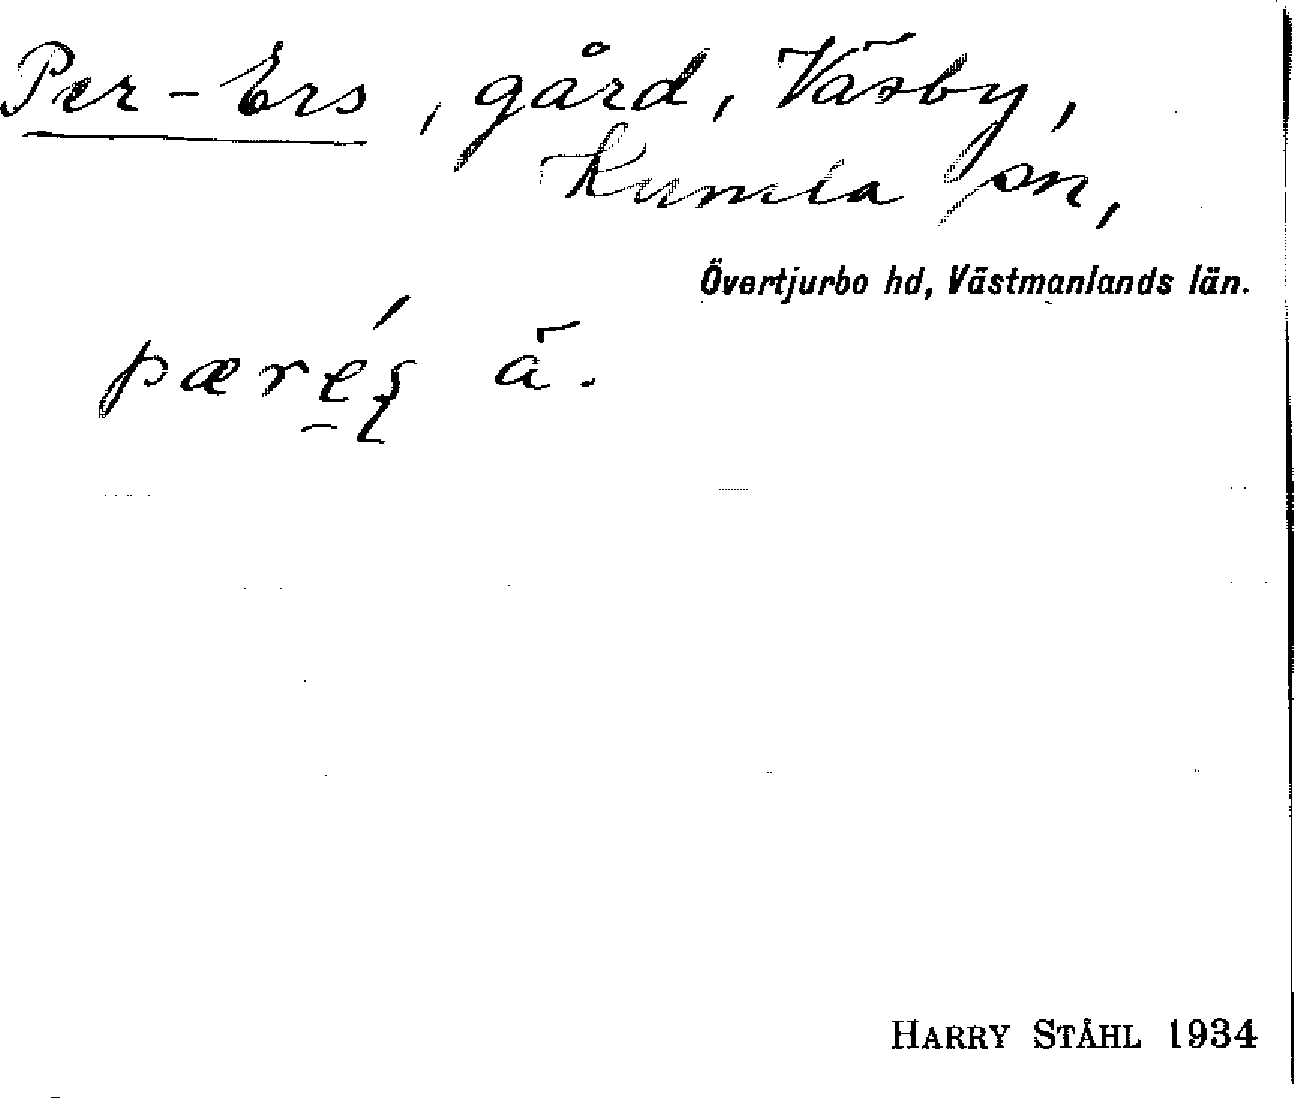 Per-Ers, gård, Väsby,
Kumla sn,
Övertjurbo hd, Västmanlands län.
ä.
HARRY STÅHL 1934